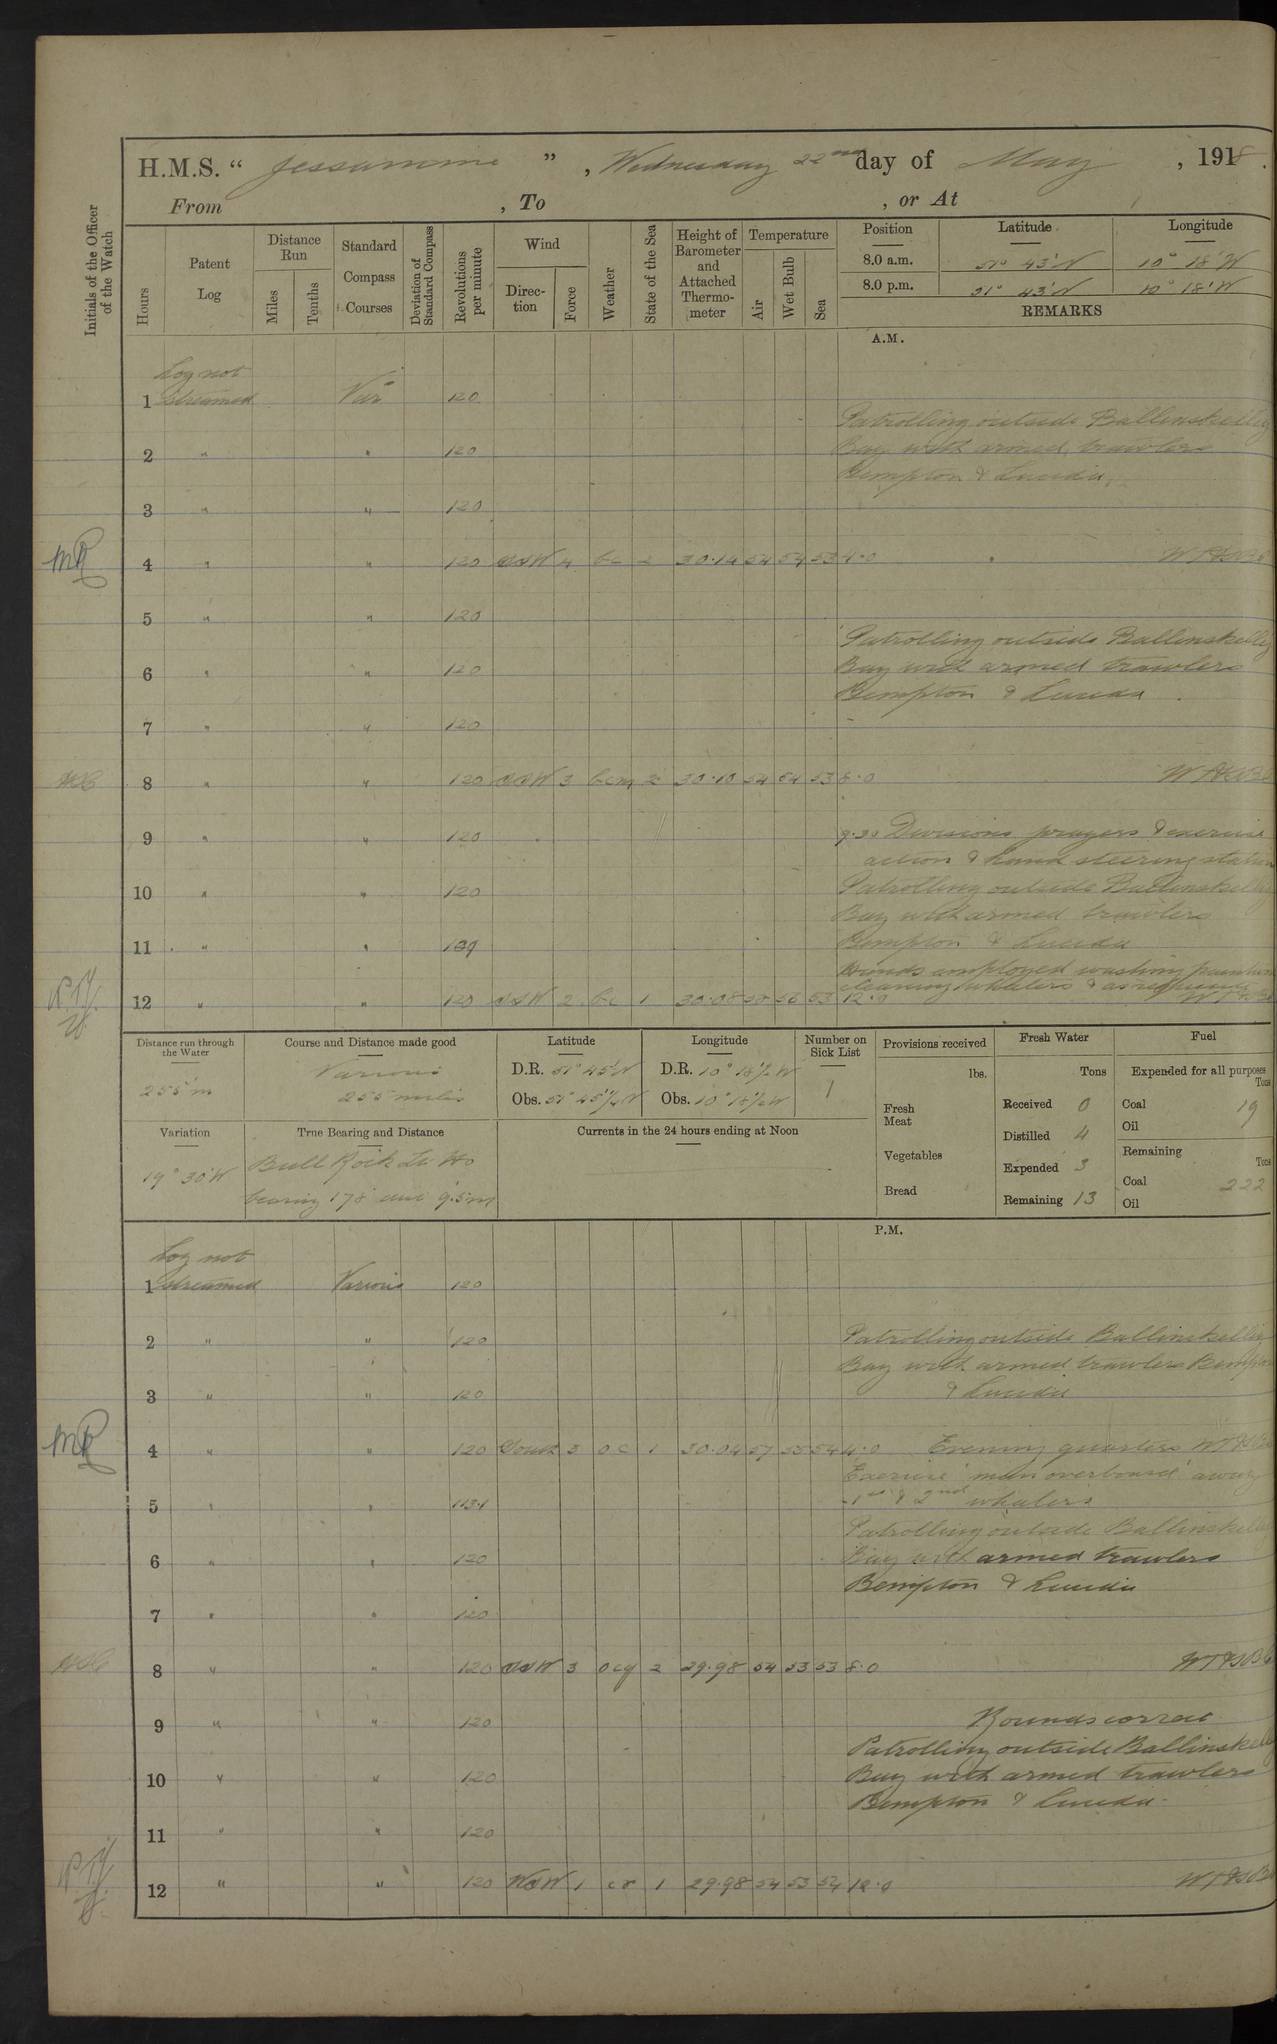 H.M.S. “ Jessamine ” , Wednesday 22nd day of May , 1918.
From , To , or At
Initials of the Officer of the Watch
Hours
Patent Log
Distance Run
Miles
Tenths
Standard Compass Courses
Deviation of Standard Compass
Revolutions per minute
Wind
Direction
Force
Weather
State of the Sea
Height of Barometer and Attached Thermometer
Temperature
Air
Wet Bulb
Sea
Position Latitude Longitude
8.0 a.m. 51° 43' N 10° 18' W
8.0 p.m. 51° 43' N 10° 18' W
REMARKS
A.M.
Log not
1 streamed Var 120
Patrolling outside Ballinskelligs
2 " " 120 Bay with armed trawlers
Bempton & Lucida
3 " " 120
MR 4 " " 120 SSW 4 bc 2 30.14 54 54 53 4.0
5 " " 120
Patrolling outside Ballinskellig
6 " " 120 Bay with armed trawlers
Bempton & Lucida
7 " " 120
8 " " 120 SSW 3 bcm 2 30.10 54 54 53 8.0
9 " " 120 9.30 Divisions prayers & exercise
action & hand steering station
10 " " 120 Patrolling outside Ballinskellig
Bay with armed trawlers
11 " " 119 Bempton & Lucida
Hands employed washing paintwork
cleaning whalers & as requisite
12 " " 120 SSW 2 bc 1 30.08 58 56 53 12.0
Distance run through the Water
255 m
Course and Distance made good
Various
255 miles
Latitude
D.R. 51° 45' N
Obs. 51° 45½' N
Longitude
D.R. 10° 18½ W
Obs. 10° 18½ W
Number on Sick List
1
Provisions received
lbs.
Fresh Meat
Vegetables
Bread
Fresh Water
Tons
Received 0
Distilled 4
Expended 3
Remaining 13
Fuel
Expended for all purposes
Tons
Coal 19
Oil
Remaining
Tons
Coal 222
Oil
Variation
19° 30' W
True Bearing and Distance
Bull Rock Lt Ho
bearing 178 dist 9.5 m
Currents in the 24 hours ending at Noon
P.M.
Log not
1 streamed Various 120
2 " " 120 Patrolling outside Ballinskellig
Bay with armed trawlers Bempton
3 " " 120 & Lucida
MR 4 " " 120 South 3 oc 1 30.04 57 55 54 4.0 Evening quarters
Exercise 'man overboard' away
5 " " 1st & 2nd whalers
Patrolling outside Ballinskellig
6 " " 120 Bay with armed trawlers
Bempton & Lucida
7 " " 120
8 " " 120 SSW 3 ocq 2 29.98 54 53 53 8.0
9 " " 120 Rounds correct
Patrolling outside Ballinskellig
10 " " 120 Bay with armed trawlers
Bempton & Lucida
11 " " 120
12 " " 120 WSW 1 cr 1 29.98 54 53 54 12.0